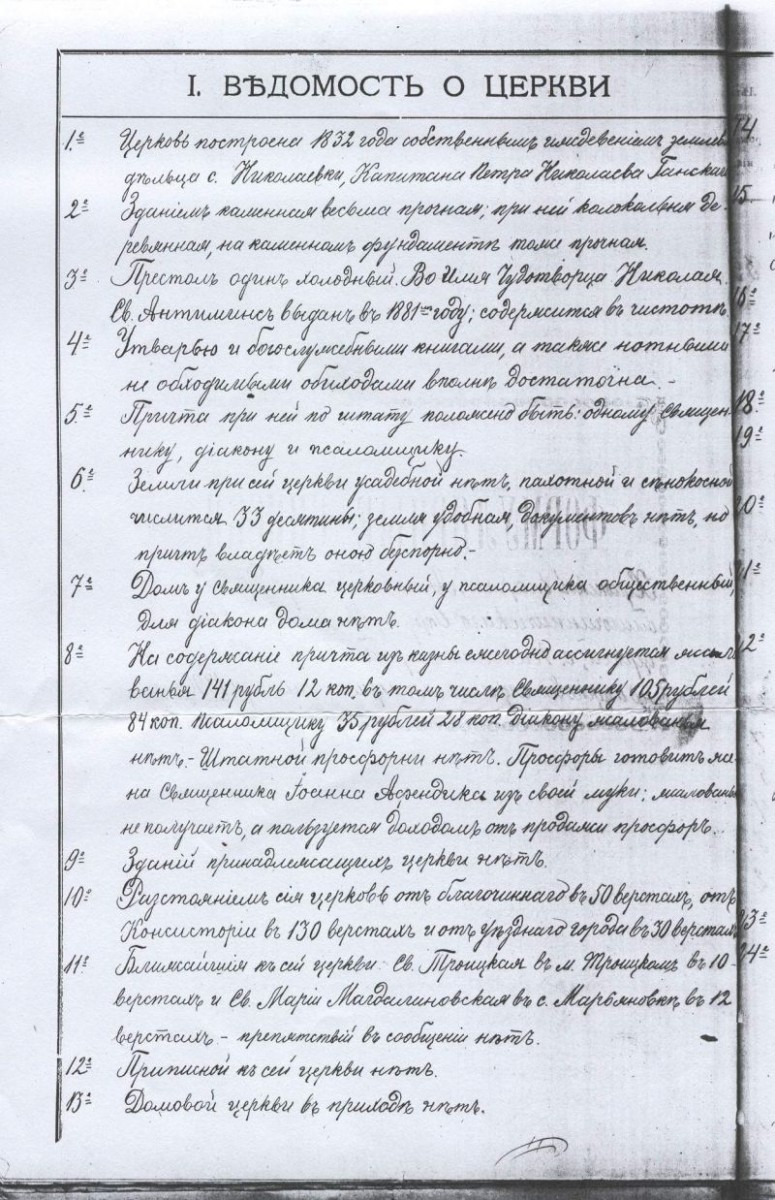 I. ВѢДОМОСТЬ О ЦЕРКВИ
1.е Церковь построена 1832 года собственнымъ иждевеніемъ землев
дѣльца с. Николаевки, Капитана Петра Николаева Ганскаг
2е Зданіемъ каменная весьма прочная; при ней колокольня де-
ревянная, на каменномъ фундаментѣ тоже прочная.
3е Престолъ одинъ холодный. Во Имя Чудотворца Николая.
Св. Антиминсъ выданъ въ 1881 году; содержится въ чистотѣ.
4е Утварью и богослужебными книгами, а также нотными
не обходимыми обиходами вполнѣ достаточна. -
5.е Причта при ней по штату положено быть: одному Священ-
нику, діакону и псаломщику.
6.е Земли при сей церкви усадебной нѣтъ, пахотной и сѣнокосной
числится 33 десятины; земля удобная, документовъ нѣтъ, но
причтъ владѣетъ оною безспорно. -
7е Домъ у Священника церковный, у псаломщика общественный,
для діакона дома нѣтъ.
8е На содержаніе причта изъ казны ежегодно ассигнуется жало-
ванья 141 рубль 12 коп. въ томъ числѣ Священнику 105 рублей
84 коп. Псаломщику 35 рублей 28 коп. Діакону жалованья
нѣтъ. - Штатной просфорни нѣтъ. Просфоры готовитъ же-
на Священника Іоанна Афендика изъ своей муки; жалованья
не получаетъ, а пользуется доходомъ отъ продажи просфоръ.
9е Зданій принадлежащихъ церкви нѣтъ.
10е Разстояніемъ сія церковь отъ благочиннаго въ 50 верстахъ, отъ
Консисторіи въ 130 верстахъ и отъ уѣзднаго города въ 30 верстахъ
11е Ближайшія къ сей церкви: Св. Троицкая въ м. Троицкомъ въ 10
верстахъ и Св. Маріи Магдалиновская въ с. Марьяновкѣ въ 12
верстахъ - препятствій въ сообщеніи нѣтъ.
12е Приписной къ сей церкви нѣтъ.
13е Домовой церкви въ приходѣ нѣтъ.
14
15.
16е
17е
18е
19е
20е
21е
22е
23е
24е